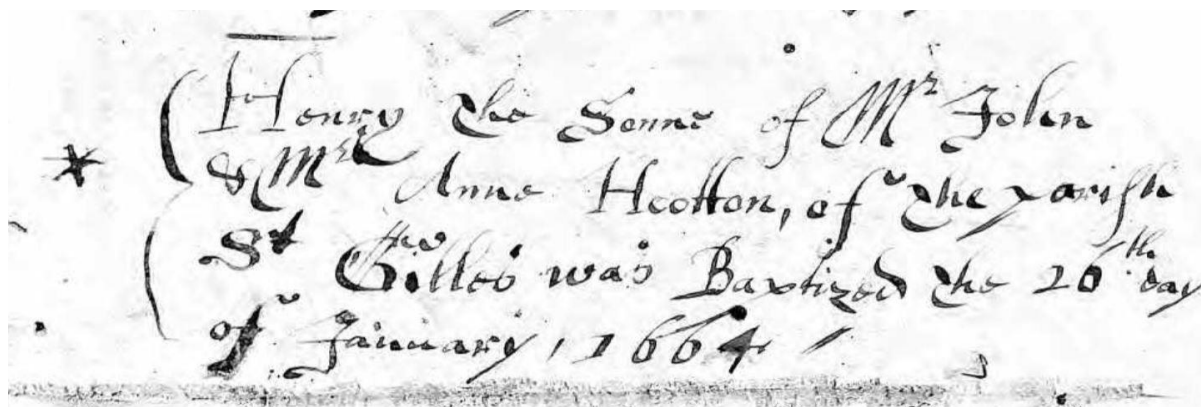 Henry the Sonne of Mr John
& Mrs Anne Heotton, of the parish
St Gilles was Baptized the 26th day
of January, 1664